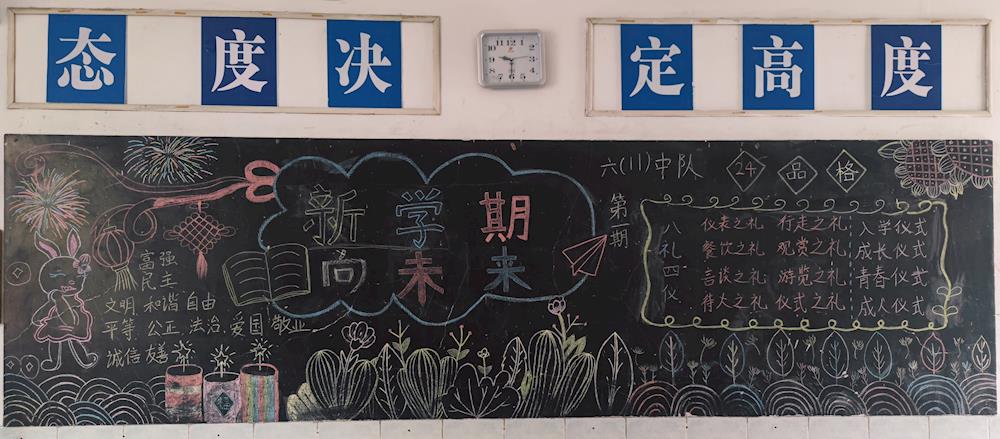 态度决
定高度
新学期
向未来
六(11)中队
24品格
第一期
八礼四仪
仪表之礼 行走之礼 入学仪式
餐饮之礼 观赏之礼 成长仪式
言谈之礼 游览之礼 青春仪式
待人之礼 仪式之礼 成人仪式
富强
民主
文明 和谐 自由
平等 公正 法治 爱国 敬业
诚信 友善